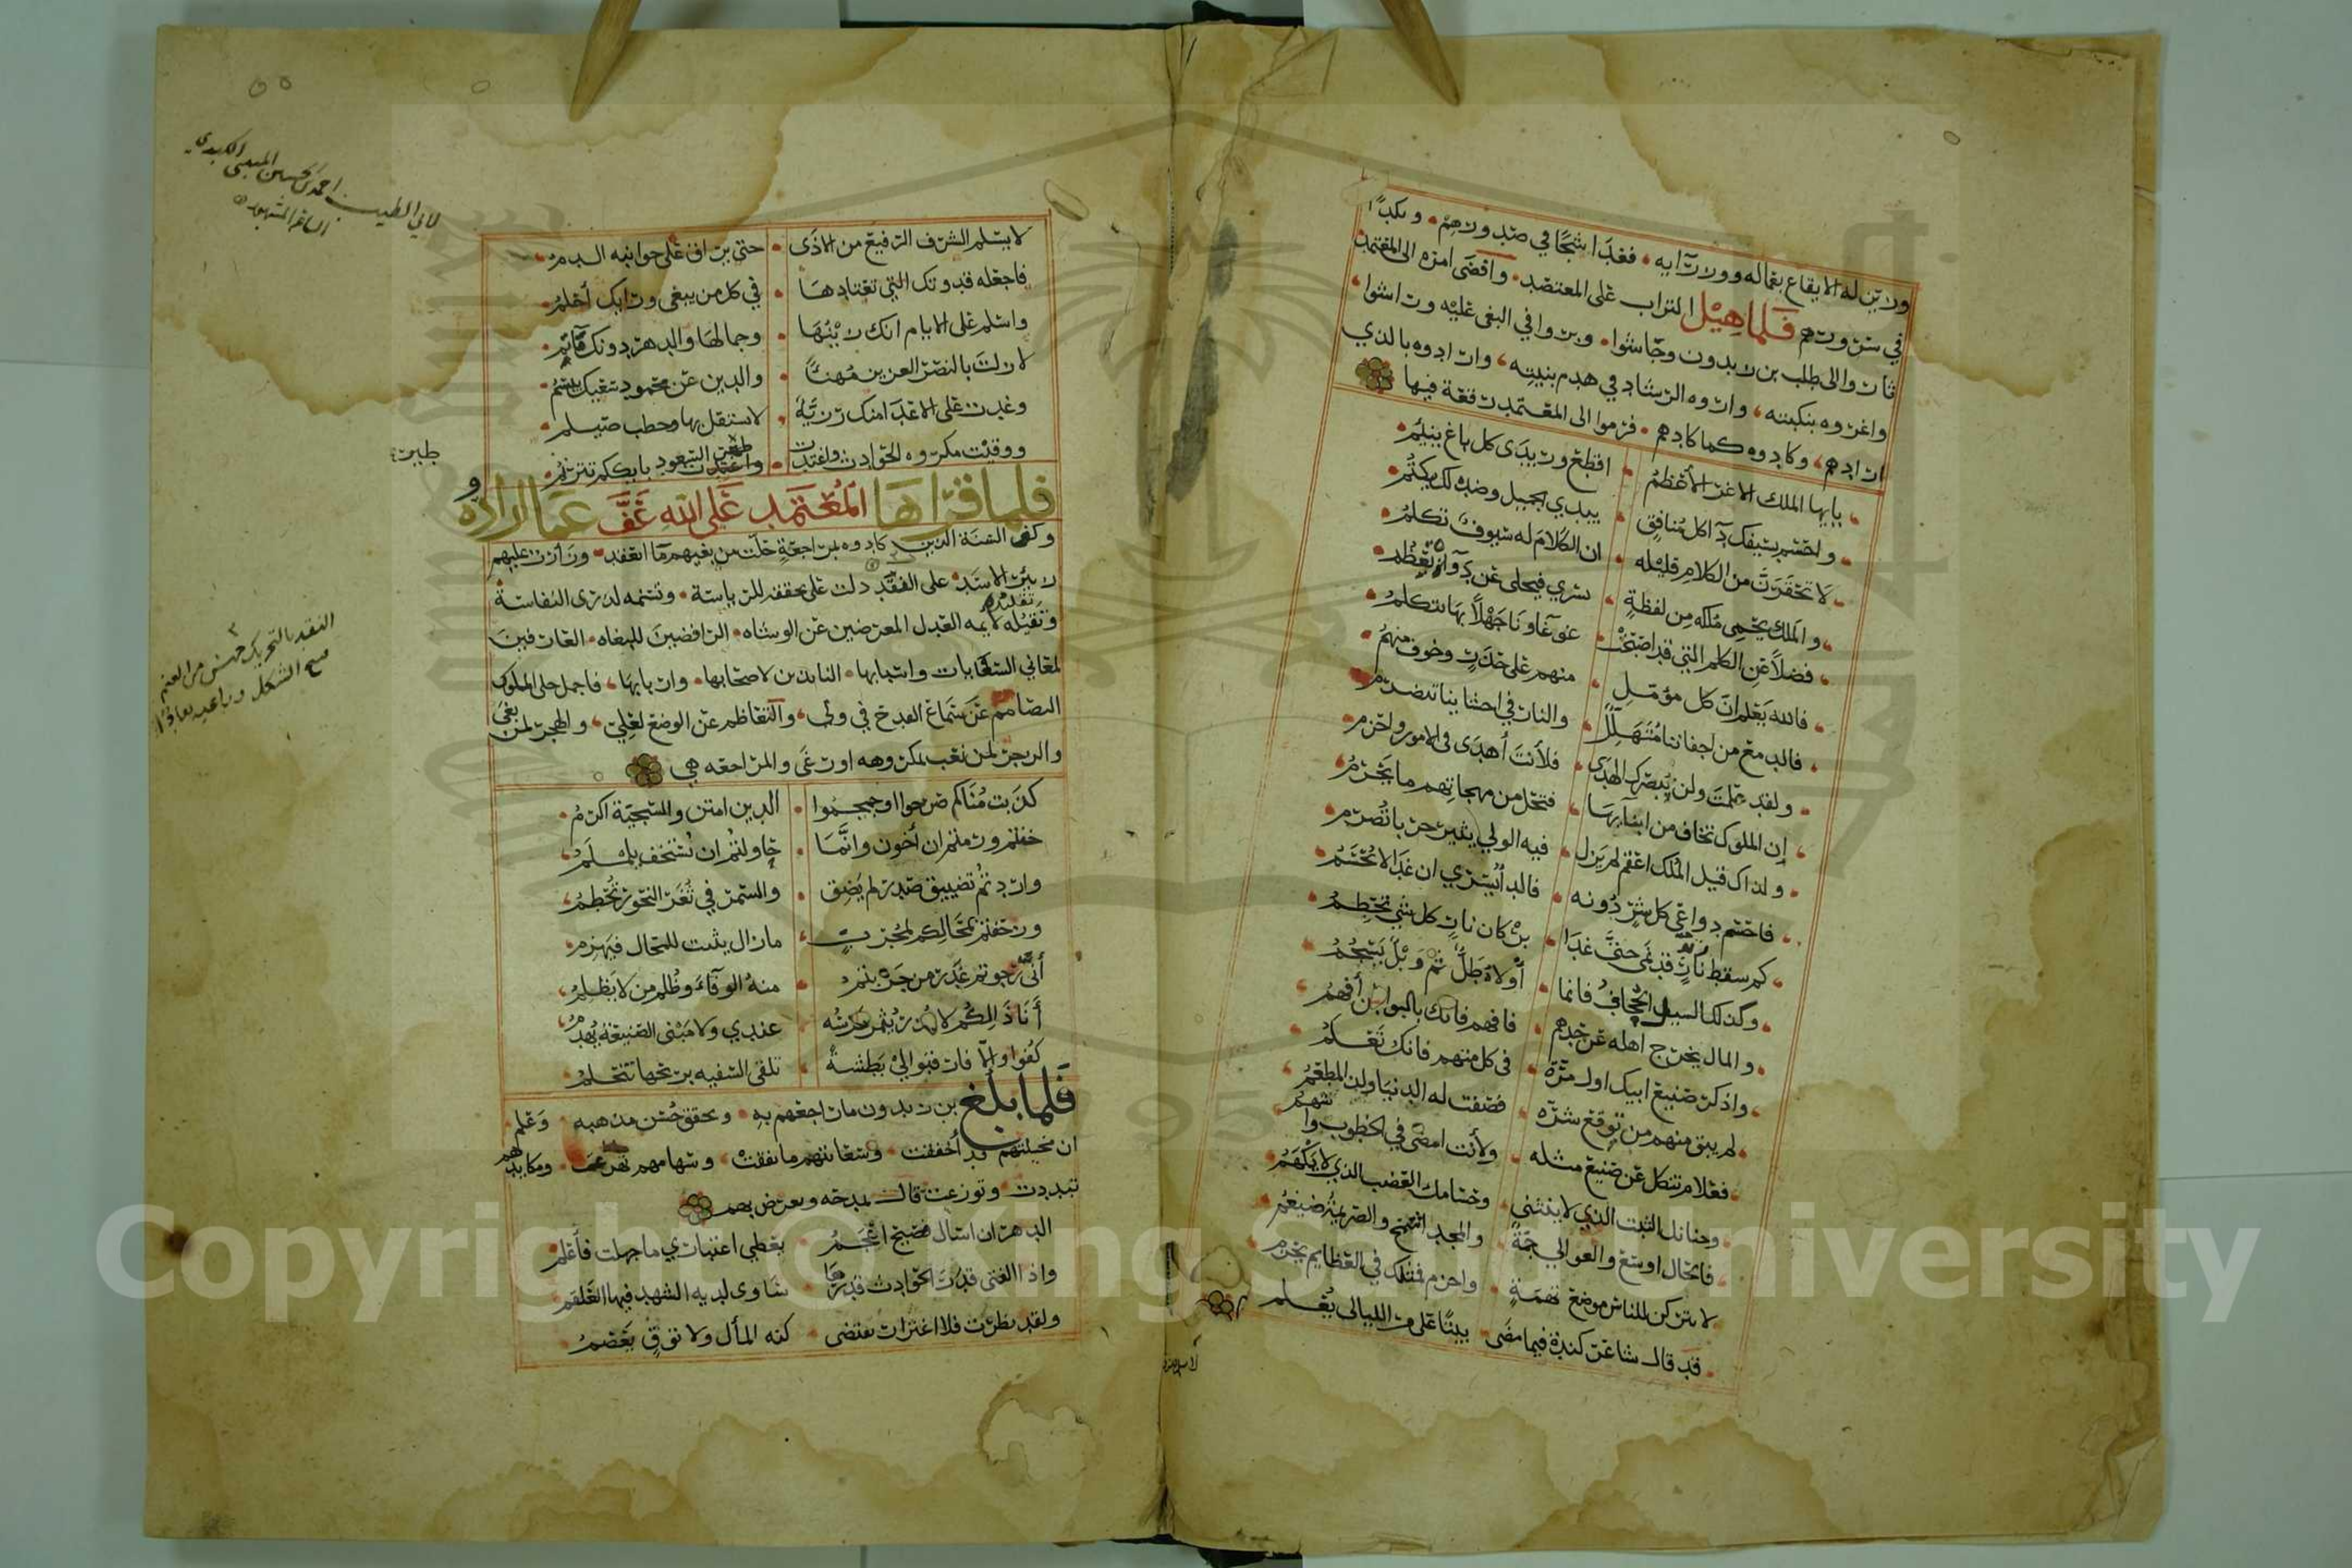 ورتن له الايقاع بغماله وورت آيه فغدا شجًا في صدورهم ونكبًا
في سرورهم فلما هيل التراب على المعتضد وافضى امره الى المعتمد
ثاروا الى طلب بن زيدون وجاشوا وبروا في البغى عليه وراشوا
واغروه بنكبته واروه الرشاد في هدم بنيته وارادوه بالذي
ارادهم وكادوه كما كادهم فرموا الى المعتمد رقعة فيها
يايها الملك الاعز الأعظم اقطع وريدى كل باغ ينئم
واحسم بسيفك دآ كل منافق يبدي الجميل وضد ذلك يكتم
لا تحقرن من الكلام قليله ان الكلام له سيوف تكلم
والملك يحمى ملكه من لفظة تسري فيجلى عن دوآه تعظم
فضلاً عن الكلم التي قد اصبحت غوغاونا جهلاً بها تتكلم
فالله يعلم ان كل مؤمل منهم على حذر وخوف منهم
فالدمع من اجفاننا متهلل والنار في احشاينا تتضرم
ولقد علمت ولن نبصرك الهدى فلأنت أهدى في الامور واحزم
ان الملوك تخاف من ابنآيها فتحل من مهجاتهم ما يحرم
ولذاك قيل الملك اعقم لم يزل فيه الولي يثير حربا تضرم
فاحسم دواعي كل شر دونه فالدآ يسري ان غدا لا يحسم
كم سقط نار قد نمى حتى غدا بركان نار كل شي تحطم
وكذلك السيل الجحاف فانما أولاه طل ثم وبل يسجم
والمال يخرج اهله عن حدهم فافهم فانك بالبواطن أفهم
واذكر صنيع ابيك اول مرة في كل منهم فانك تعلم
لم يبق منهم من توقع شره فصفت له الدنيا ولذ المطعم
فعلام تنكل عن صنيع مثله ولأنت امضى في الخطوب واشهم
وجنانك الثبت الذي لا ينثني وحسامك العضب الذي لا يكهم
فالحال اوسع والعوالي جمة والمجد اشمخ والصريمة ضيغم
لا تتركن للناس موضع تهمة واحزم فمثلك في العظايم يحزم
قد قال شاعر كندة فيما مضى بيتًا على مر الليالى يعلم
لا يسلم
لا يسلم الشرف الرفيع من الاذى حتى يراق على جوانبه الدم
لابي الطيب احمد بن الحسين المتنبي الكندي
الشاعر المشهور
فاجعله قدوتك التي تعتادها في كل من يبغى ورايك أعلم
واسلم على الايام انك زينها وجمالها والدهر دونك مآتم
لا زلت بالنصر العزيز مهنأً والدين عن محمود سعيك يبسم
وغدت على الاعدا منك رزية لا تستقل بها وخطب صيلم
ووقيت مكروه الحوادث واغتدت طير السعود بايككم تترنم
طير
فلما قراها المعتمد على الله عف عما ارادوه
وكف السنة الذين كادوه بمراجعة حلت من بغيهم ما انعقد وزأرت عليهم
زئير الاسد على النقد دلت على تحققه للرياسة وتسنمه لذرى النفاسة
وتقيله لايمه العدل المعرضين عن الوشاه الرافضين للبغاه العارفين
لمعاني السعايات واسبابها النابذين لاصحابها واربابها فاجمل حلى الملوك
التصامم عن سماع القدح في ولي والتعاظم عن الوضع لعلي والهجر لمن بغى
والزجر لمن نعب بمكروهه اورغى والمراجعه هي
النقد بالتحريك جنس من الغنم
قبيح الشكل وراعيه نعاقر
كذبت مناكم صرحوا او جمجموا الدين امتن والسجية اكرم
خنتم ورمتم ان أخون وانما حاولتم ان يستخف يلملم
واردتم تضييق صدر لم يضق والسمر في ثغر النحور تحطم
وزحفتم بمحالكم لمجرب ما زال يثبت للمحال فيهزم
أنى رجوتم غدر من جربتم منه الوفآء وظلم من لا يظلم
أنا ذالكم لا البغى يثمر غرسه عندي ولا مبنى الصنيعة يهدم
كفوا والا فارقبوا لي بطشة تلقى السفيه بربحها تتحلم
فلما بلغ بن زيدون ما راجعهم به وتحقق حسن مذهبه وعلم
ان مخيلتهم قد أخفقت وسعايتهم ما نفقت وسهامهم تهرعت ومكايدهم
تبددت وتوزعت قال يمدحه ويعرض بهم
الدهر ان اسأل فصيح اعجم يعطي اعتباري ما جهلت فأعلم
واذا الفتى قدر الحوادث قدرها ساوى لديه الشهد فيها العلقم
ولقد نظرت فلا اغترار يقتضى كنه المأل ولا توق يعصم